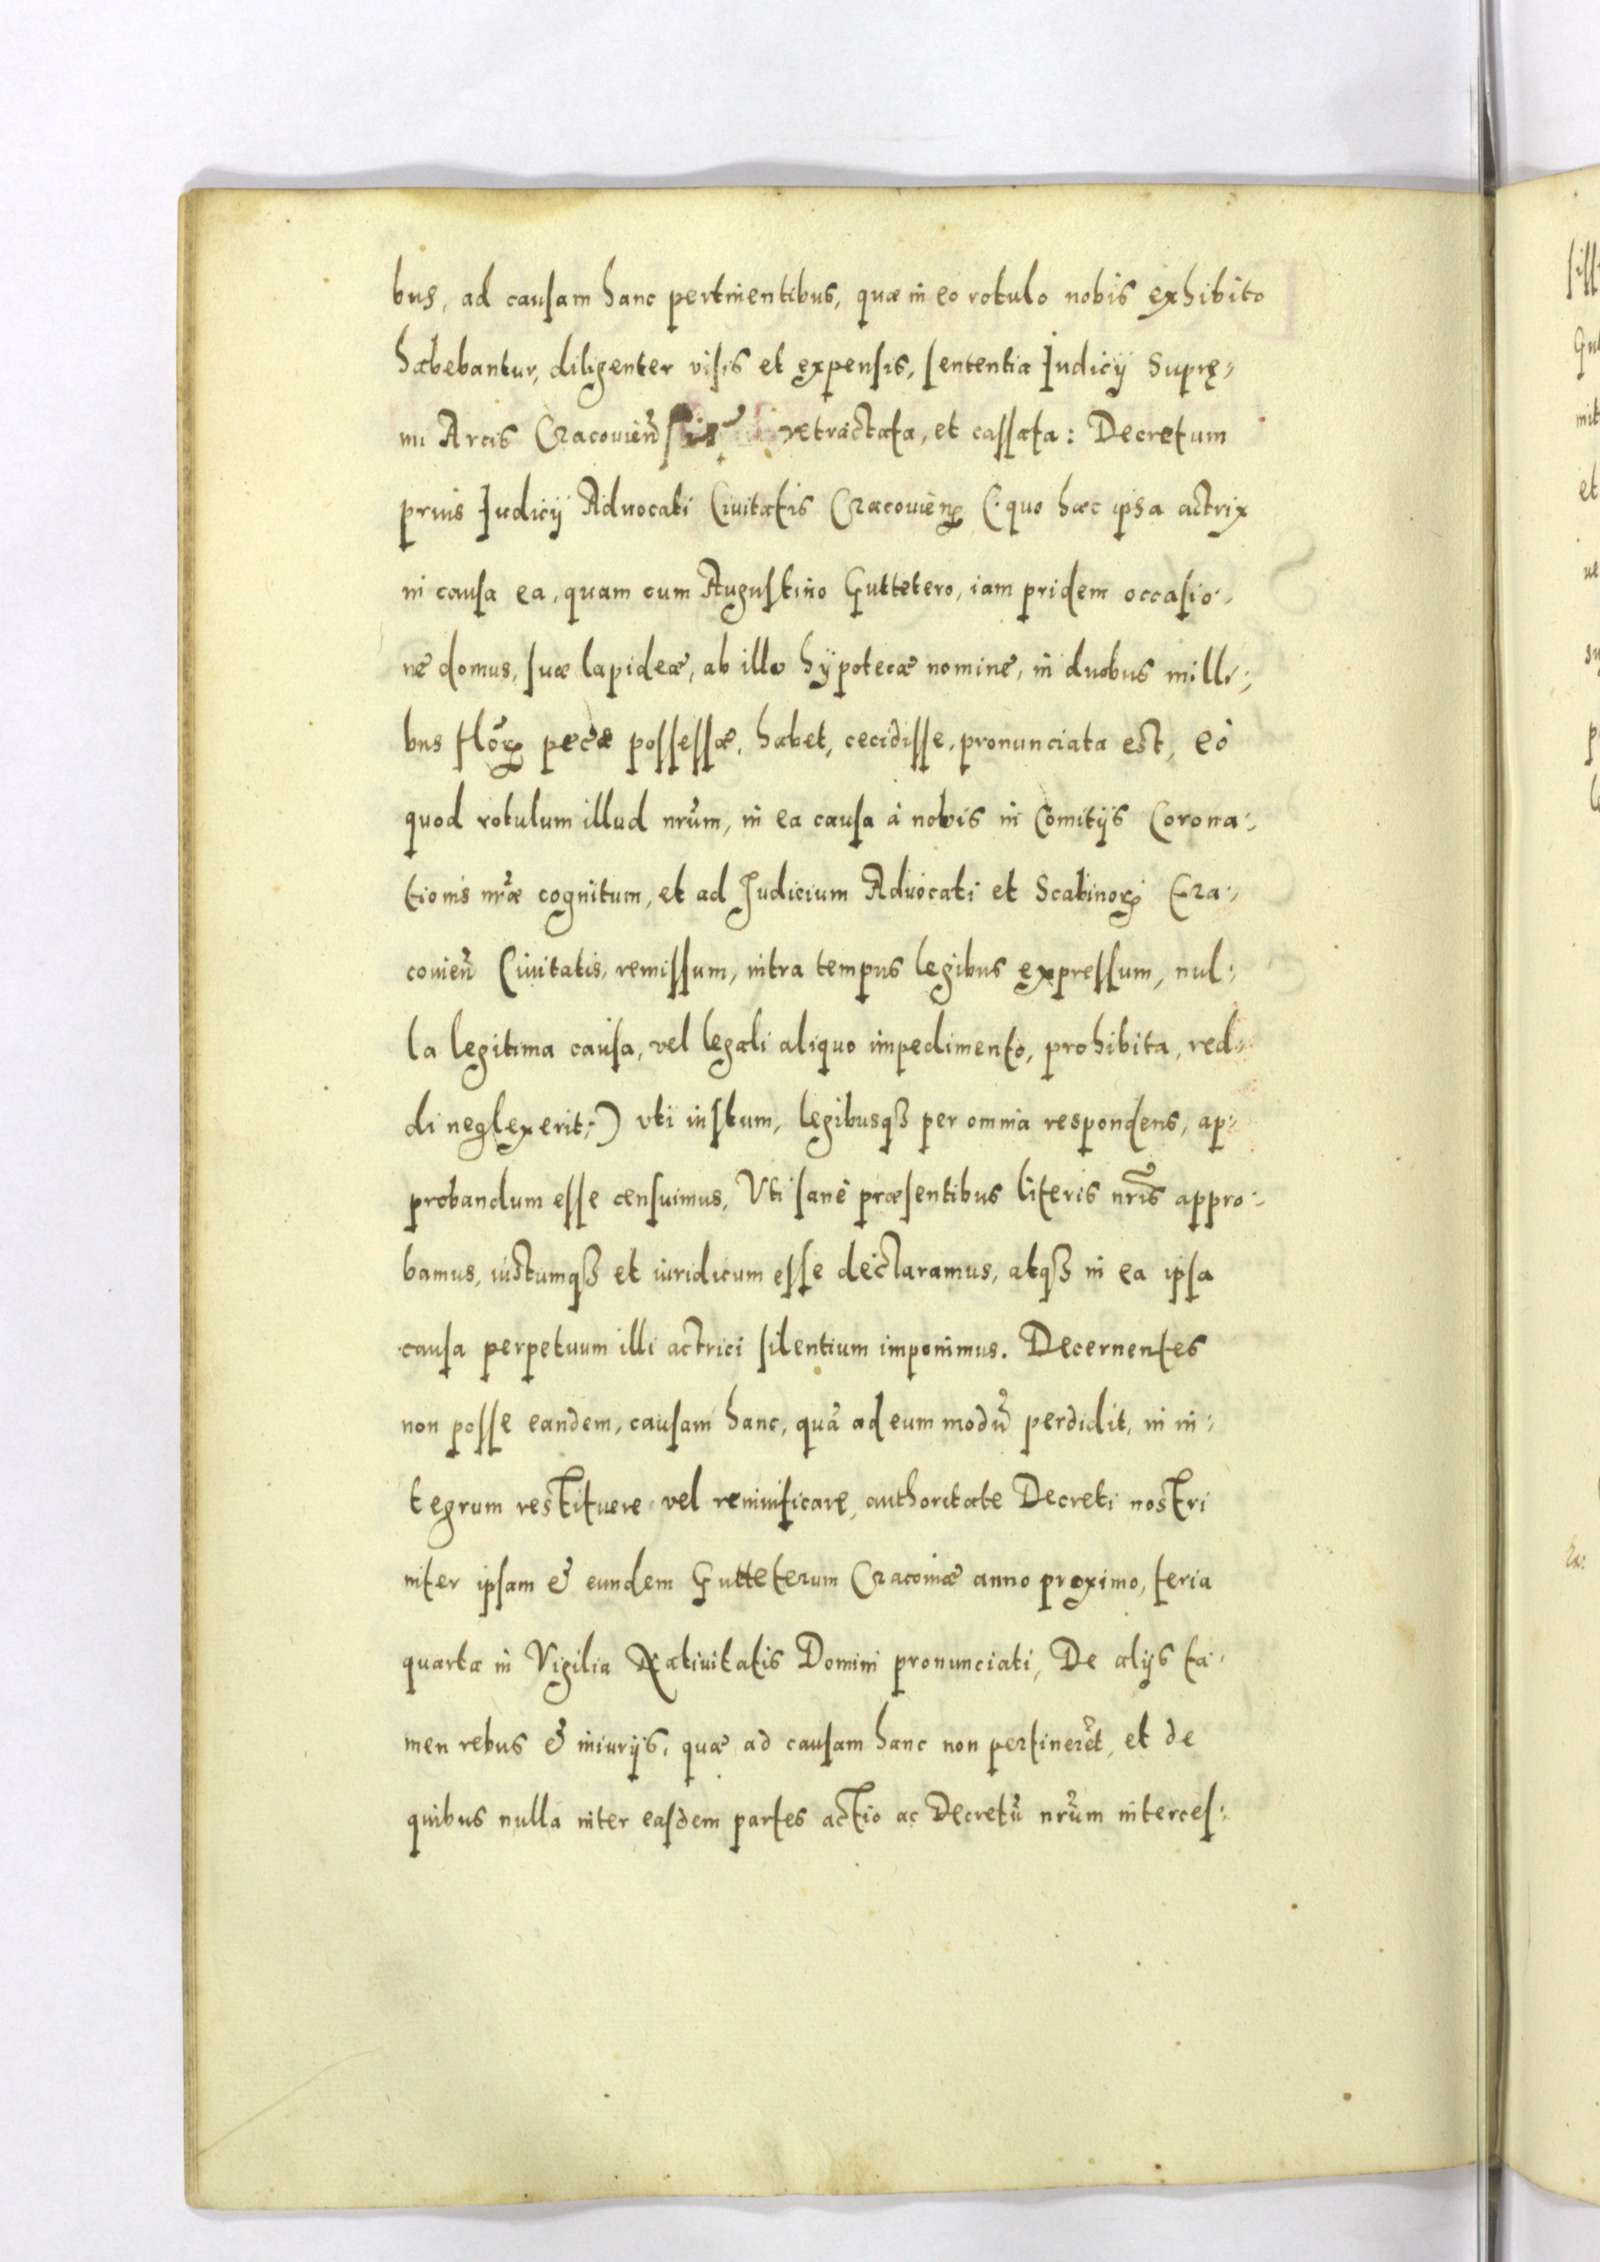 bus, ad causam hanc pertinentibus, quæ in eo rotulo nobis exhibito
habebantur, diligenter visis et expensis, sententia Iudicij Suprę-
mi Arcis Cracovien̄ retractata, et cassata: Decretum
prius Iudicij Advocati Civitatis Cracovien̄ (quo hæc ipsa actrix
in causa ea, quam cum Augustino Guttetero, iam pridem occasio-
ne domus, suæ lapideæ, ab illo hÿpotecæ nomine, in duobus milli-
bus flor̄ pec̄æ possessæ, habet, cecidisse, pronunciata est, eò
quod rotulum illud nr̄um, in ea causa à nobis in Comitijs Corona-
tionis nr̄æ cognitum, et ad Iudicium Advocati et Scabinorꝝ Cra-
covien̄ Civitatis, remissum, intra tempus legibus expressum, nul-
la legitima causa, vel legali aliquo impedimento, prohibita, red-
di neglexerit;) uti iustum, legibusqꝫ per omnia respondens, ap-
probandum esse censuimus, Uti sanè præsentibus literis nr̄is appro-
bamus, iustumqꝫ et iuridicum esse declaramus, atqꝫ in ea ipsa
causa perpetuum illi actrici silentium imponimus. Decernentes
non posse eandem, causam hanc, quā ad eum modū perdidit, in in-
tegrum restituere vel reinificare, authoritate Decreti nostri
inter ipsam & eundem Gutteterum Cracoviæ anno proximo, feria
quarta in Vigilia Nativitatis Domini pronunciati, De alijs ta-
men rebus & iniurijs, quæ ad causam hanc non pertinerēt, et de
quibus nulla inter easdem partes actio ac Decretū nr̄um interces-